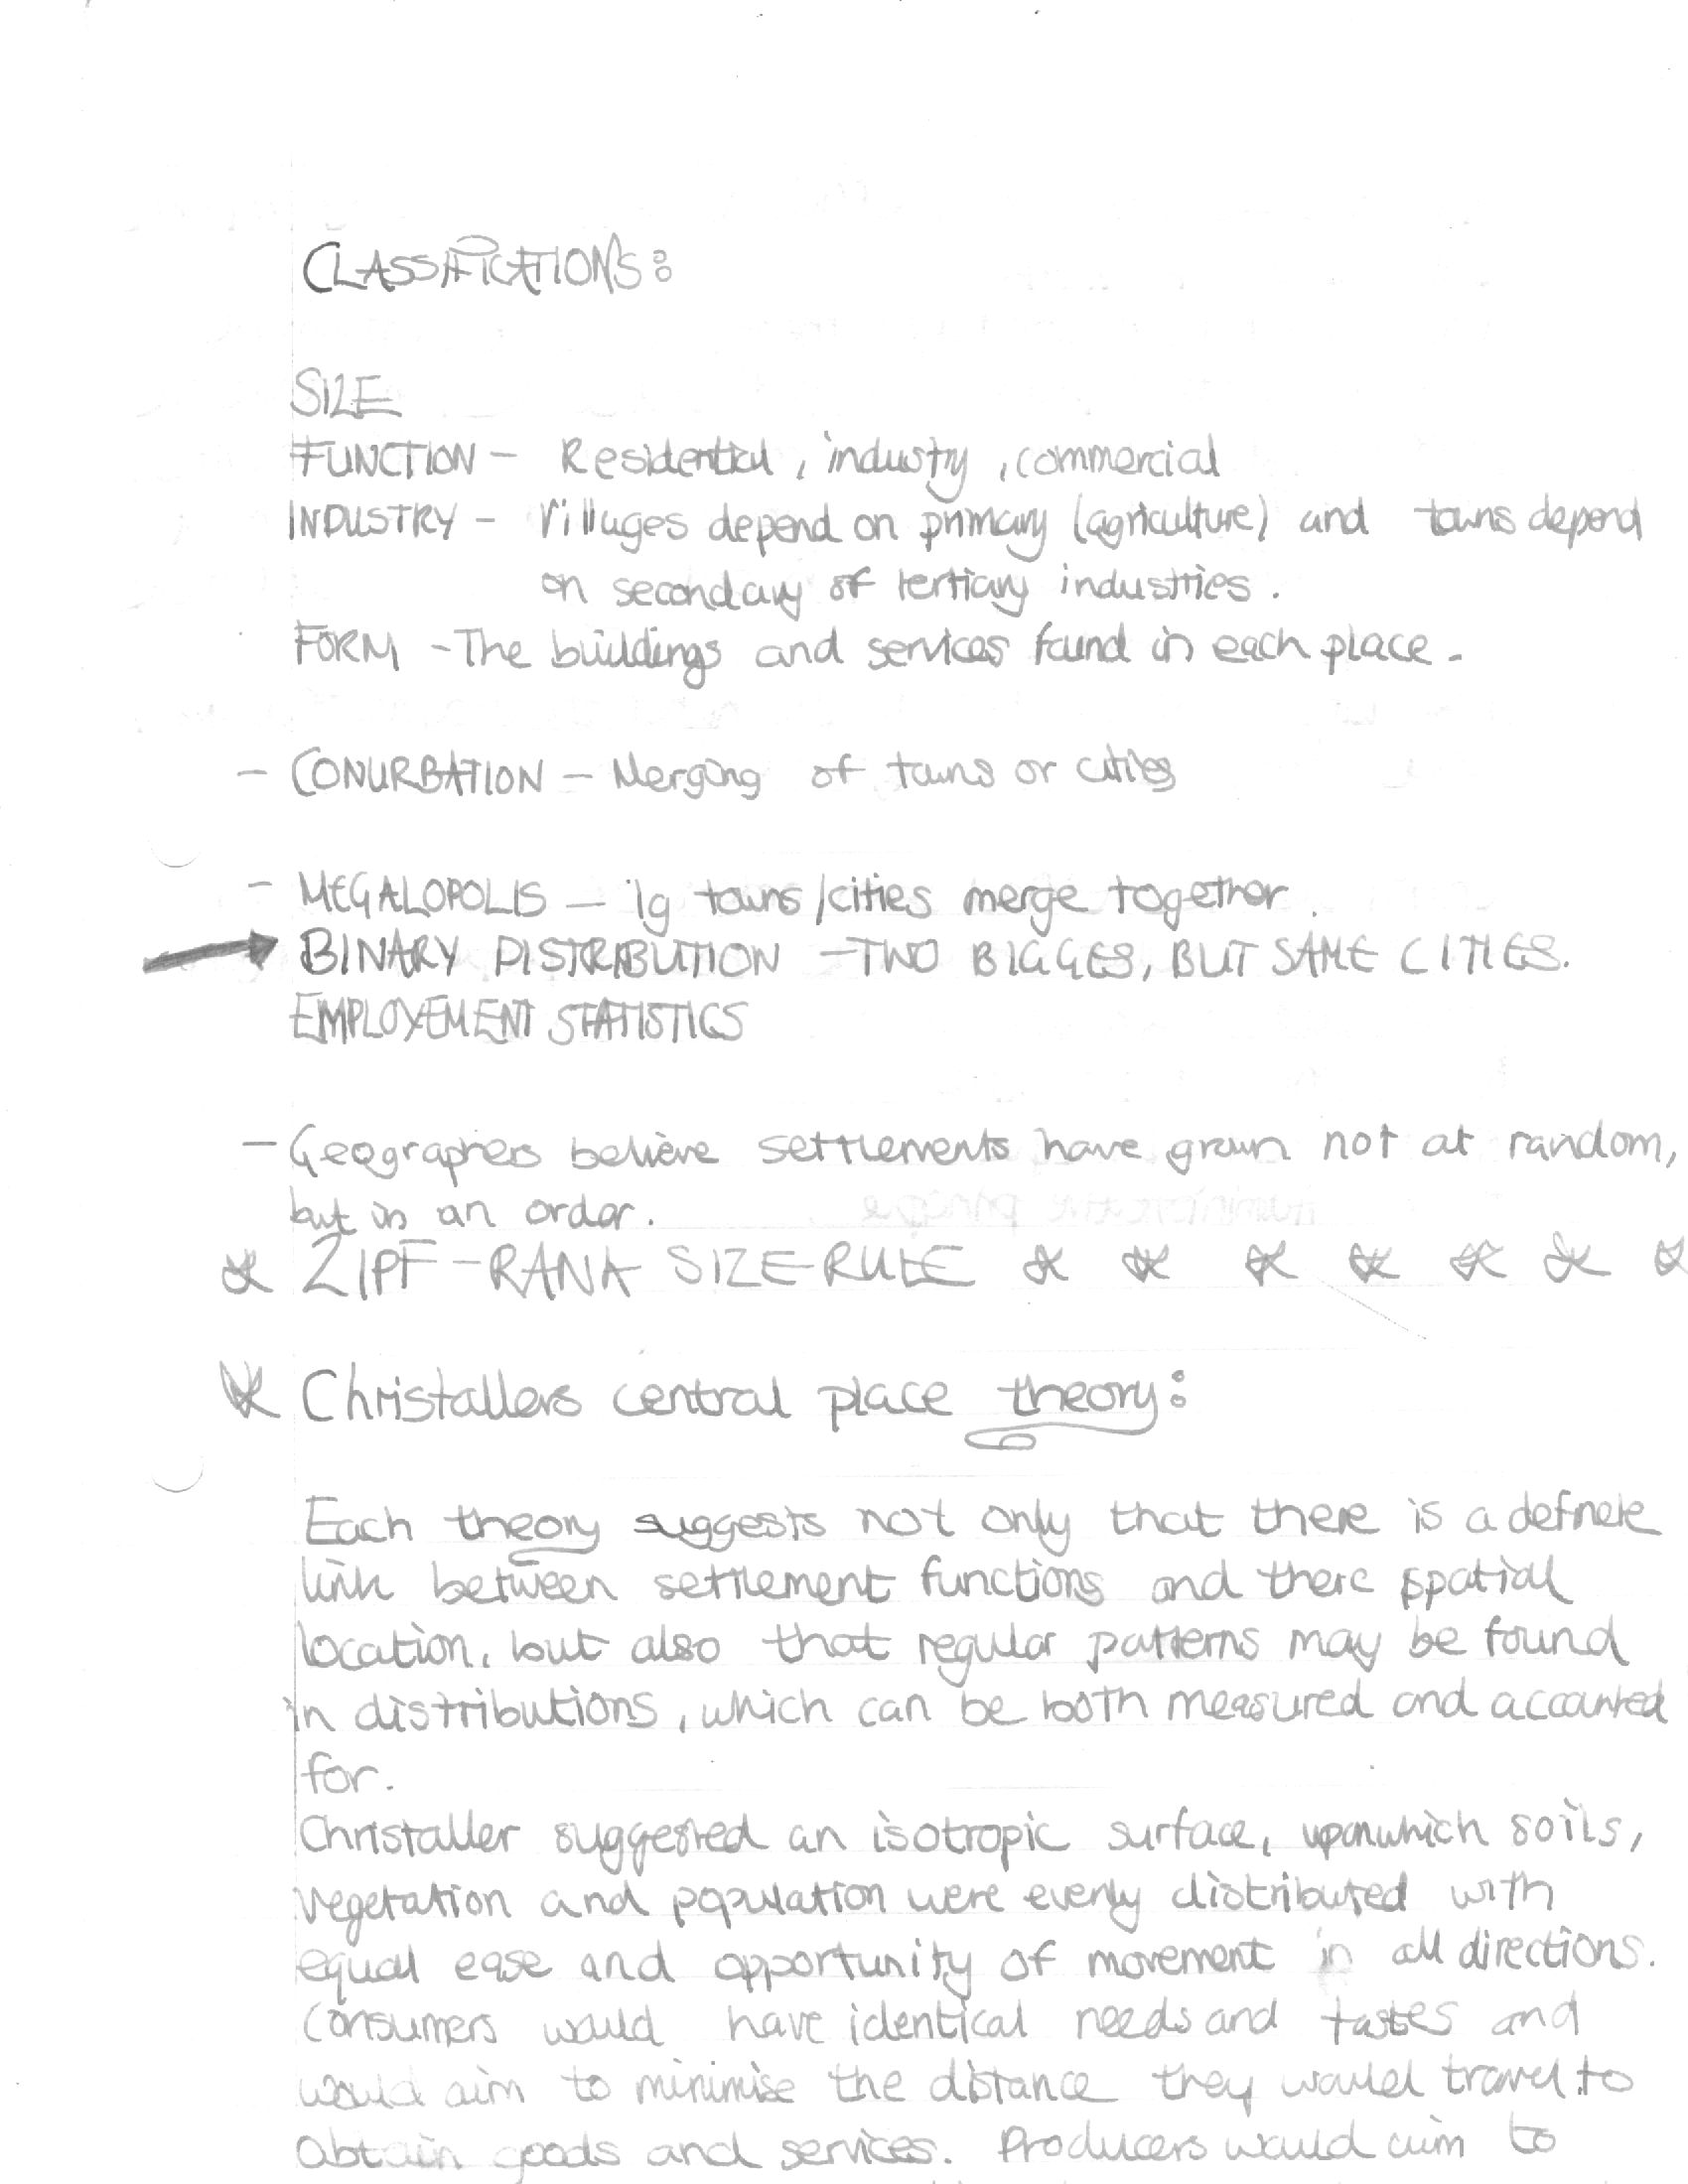 CLASSIFICATIONS:
SIZE
FUNCTION - Residential, industry, commercial
INDUSTRY - Villages depend on primary (agriculture) and towns depend
on secondary of tertiary industries.
FORM - The buildings and services found in each place.
- CONURBATION - Merging of towns or cities
- MEGALOPOLIS - lg towns/cities merge together.
BINARY DISTRIBUTION - TWO BIGGES, BUT SAME CITIES.
EMPLOYEMENT STATISTICS
- Geographers believe settlements have grown not at random,
but in an order.
ZIPF - RANK SIZE RULE
Christallers central place theory:
Each theory suggests not only that there is a definete
link between settlement functions and there spatial
location, but also that regular patterns may be found
in distributions, which can be both measured and accounted
for.
Christaller suggested an isotropic surface, upon which soils,
vegetation and population were evenly distributed with
equal ease and opportunity of movement in all directions.
Consumers would have identical needs and tastes and
would aim to minimise the distance they would travel to
obtain goods and services. Producers would aim to